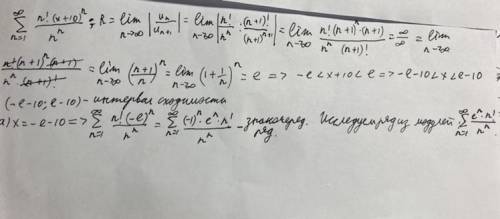 ∑_{n=1}^{∞} n!(x+10)^n / n^n ; R = lim_{n→∞} |u_n / u_{n+1}| = lim_{n→∞} |n!/n^n : (n+1)!/(n+1)^{n+1}| = lim_{n→∞} n!(n+1)^n·(n+1) / n^n (n+1)! = ∞/∞ = lim_{n→∞}
n!(n+1)^n·(n+1) / n^n (n+1)! = lim_{n→∞} ((n+1)/n)^n = lim_{n→∞} (1+1/n)^n = e => -e<x+10<e => -e-10<x<e-10
(-e-10; e-10) - интервал сходимости
а) x = -e-10 => ∑_{n=1}^{∞} n!(-e)^n / n^n = ∑_{n=1}^{∞} (-1)^n·e^n·n! / n^n - знакочеред. ряд. Исследуем ряд из модулей ∑_{n=1}^{∞} e^n·n! / n^n